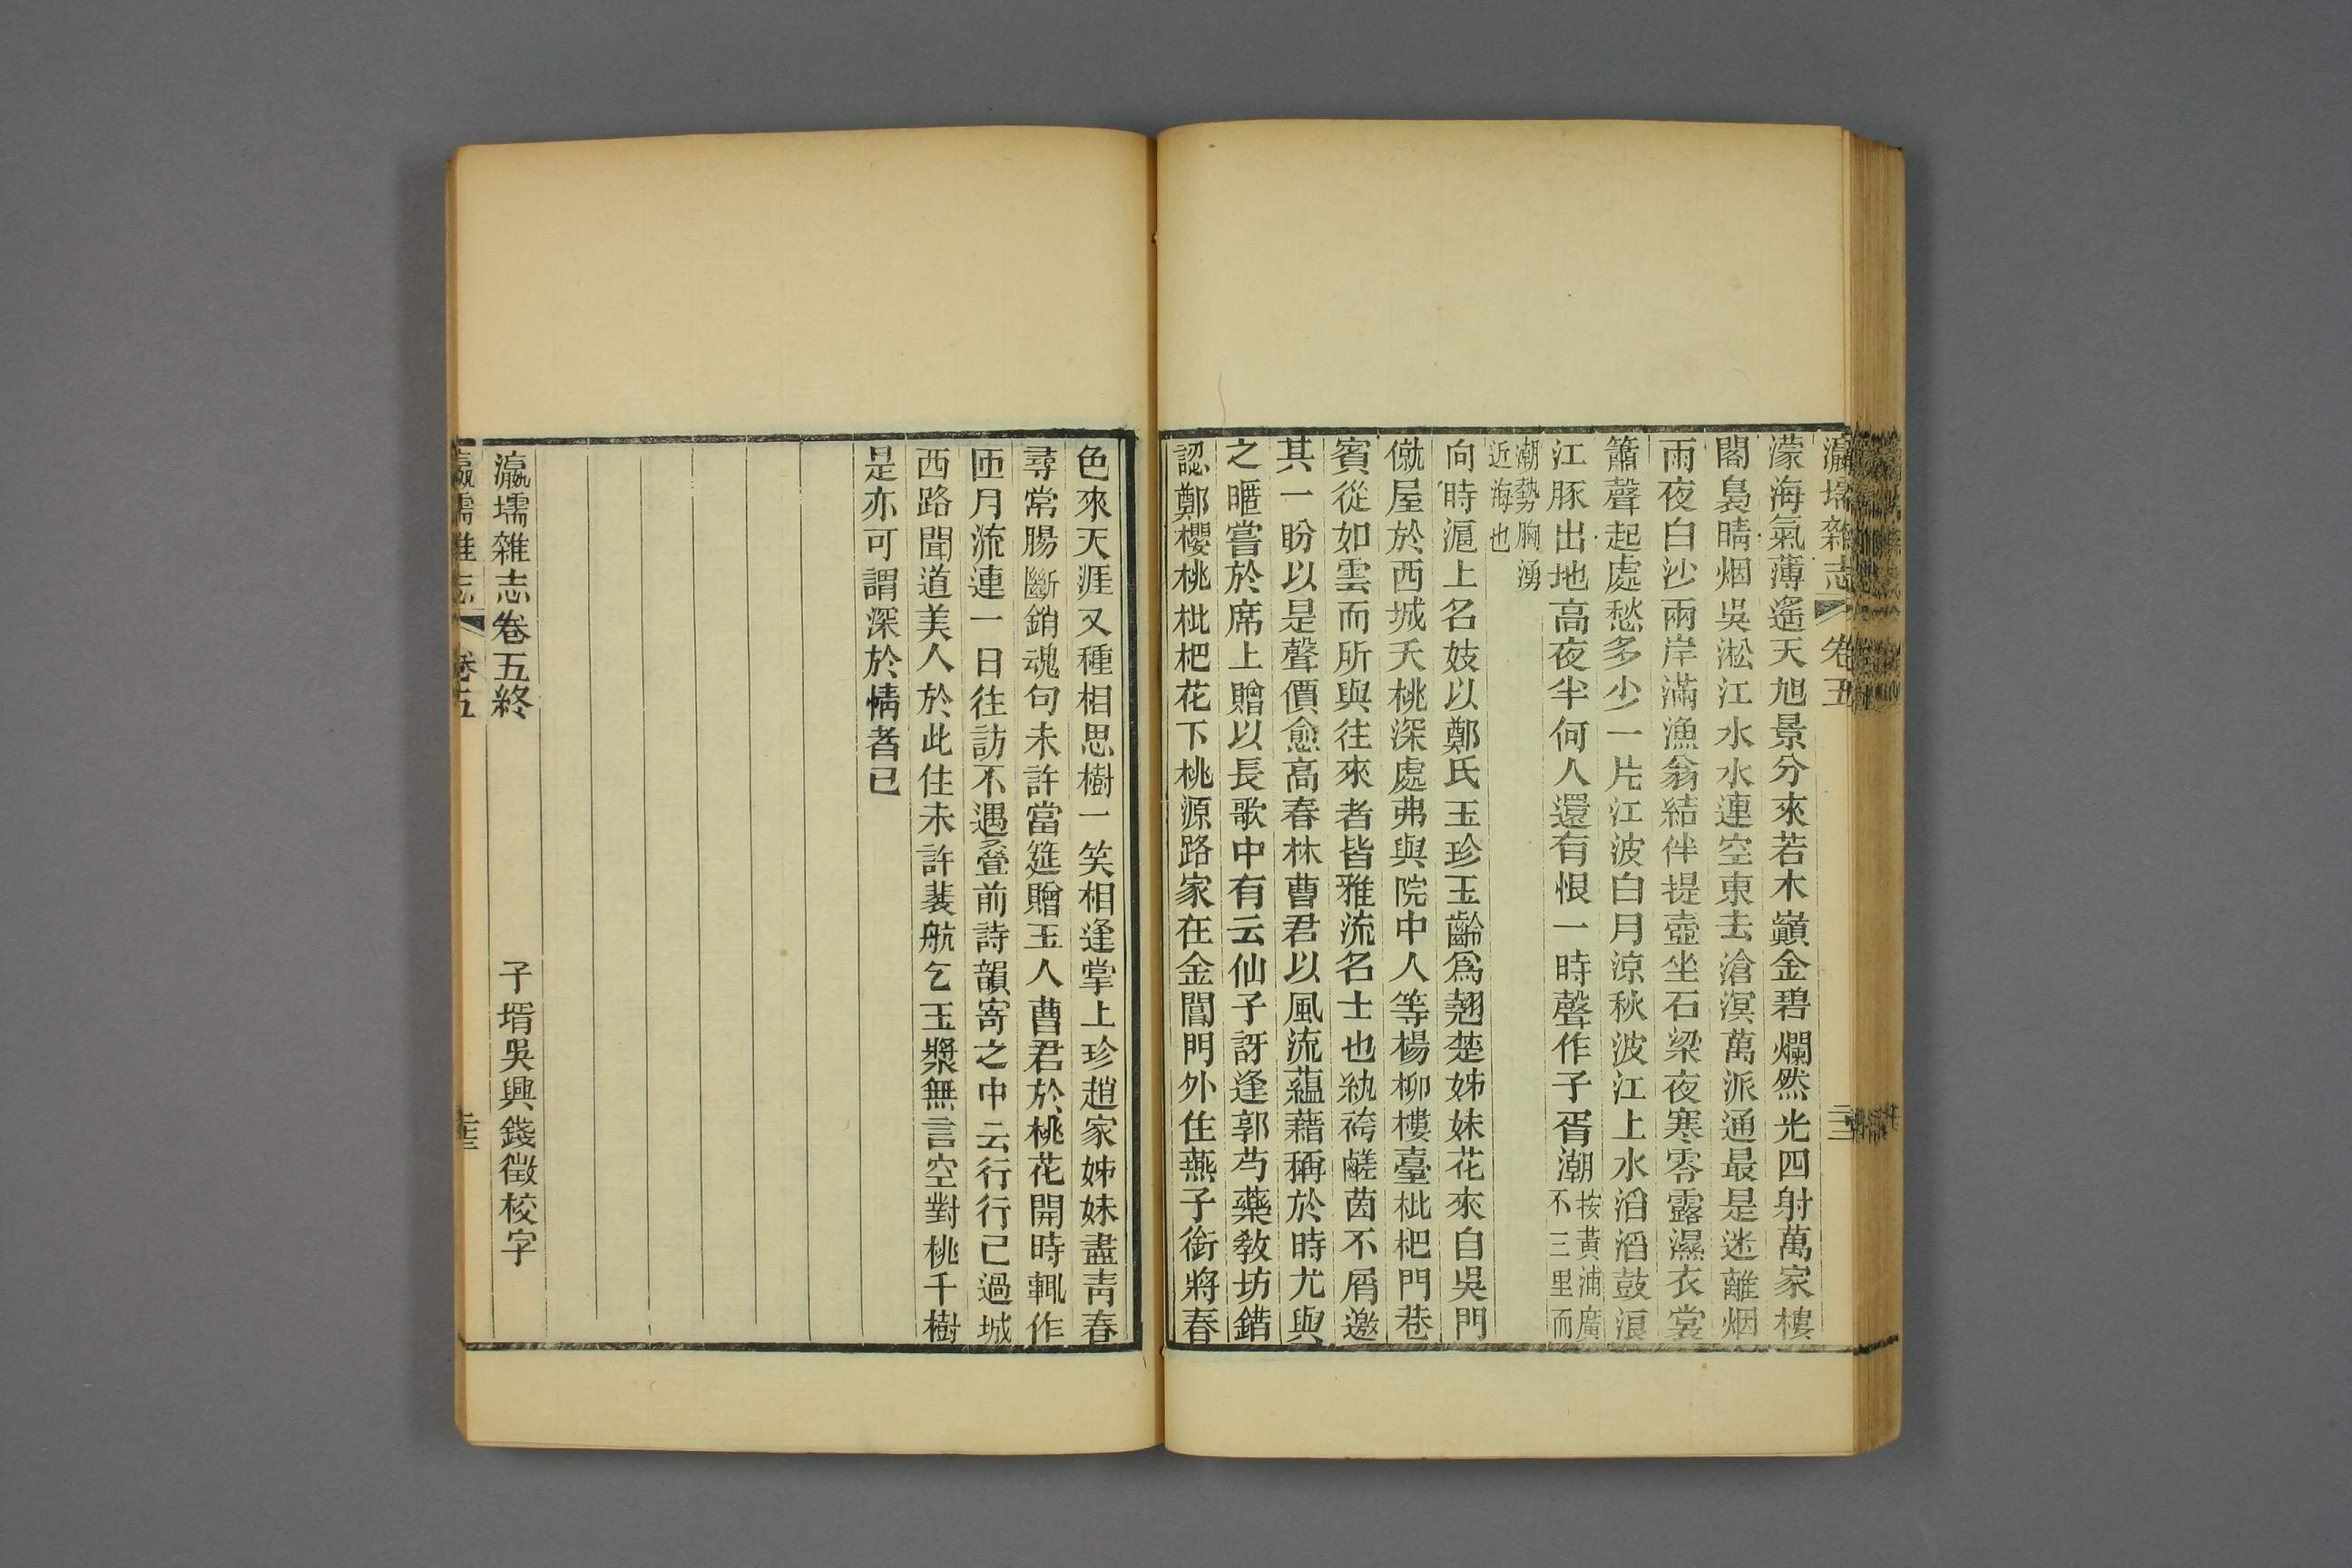 瀛壖雜志 卷五
濛海氣薄遙天旭景分來若木巔金碧爛然光四射萬家樓
閣裊晴烟吳淞江水水連空東去滄溟萬派通最是迷離烟
雨夜白沙兩岸滿漁翁結伴提壺坐石梁夜寒零露濕衣裳
簫聲起處愁多少一片江波白月涼秋波江上水滔滔鼓浪
江豚出地高夜半何人還有恨一時聲作子胥潮按黃浦廣不三里而
潮勢胸湧近海也
向時滬上名妓以鄭氏玉珍玉齡爲翹楚姊妹花來自吳門
僦屋於西城夭桃深處弗與院中人等楊柳樓臺枇杷門巷
賓從如雲而所與往來者皆雅流名士也紈袴鹺茵不屑邀
其一盼以是聲價愈高春林曹君以風流蘊藉稱於時尤與
之暱嘗於席上贈以長歌中有云仙子訝逢郭芍藥敎坊錯
認鄭櫻桃枇杷花下桃源路家在金閶門外住燕子銜將春
色來天涯又種相思樹一笑相逢掌上珍趙家姊妹盡靑春
尋常腸斷銷魂句未許當筵贈玉人曹君於桃花開時輒作
匝月流連一日往訪不遇叠前詩韻寄之中云行行已過城
西路聞道美人於此住未許裴航乞玉漿無言空對桃千樹
是亦可謂深於情者已
瀛壖雜志卷五終
子壻吳興錢徵校字
瀛壖雜志 卷五